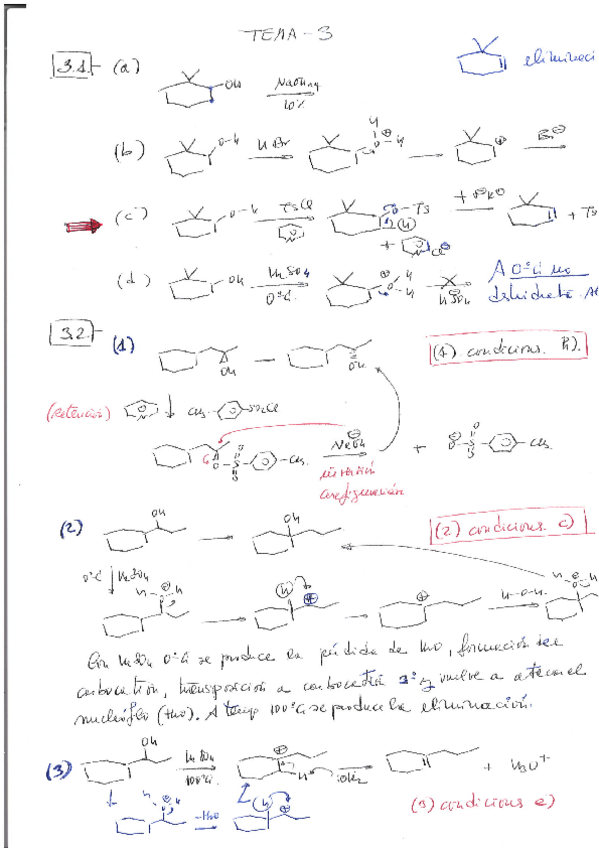 TEMA - 3
3.1 - (a)
OH
NaOH aq
10%
eliminaci
(b)
O-H
HBr
H
O-H
Br
(c)
O-H
TsCl
O-Ts
(H)
N
+
Cl
+
+ Ts
(d)
OH
H2SO4
0ºC
O
H
H
H2SO4
A 0ºC no
deshidrata
3.2 -
(1)
OH
OH
(1) condiciones. h).
(Retención)
N
CH3
SO2Cl
O
S
O
CH3
NaOH
inversión
configuración
+
CH3
(2)
OH
OH
(2) condiciones. c)
0ºC
H2SO4
H
H
(H)
H-O-H
H
H
Con H2SO4 0ºC se produce la pérdida de H2O, formación del
carbocatión, transposición a carbocatión 3º y vuelve a atacar el
nucleófilo (H2O). A temp 100ºC se produce la eliminación.
(3)
OH
H2SO4
100ºC
H
:OH2
+ H3O+
-H2O
(H)
(3) condiciones e)